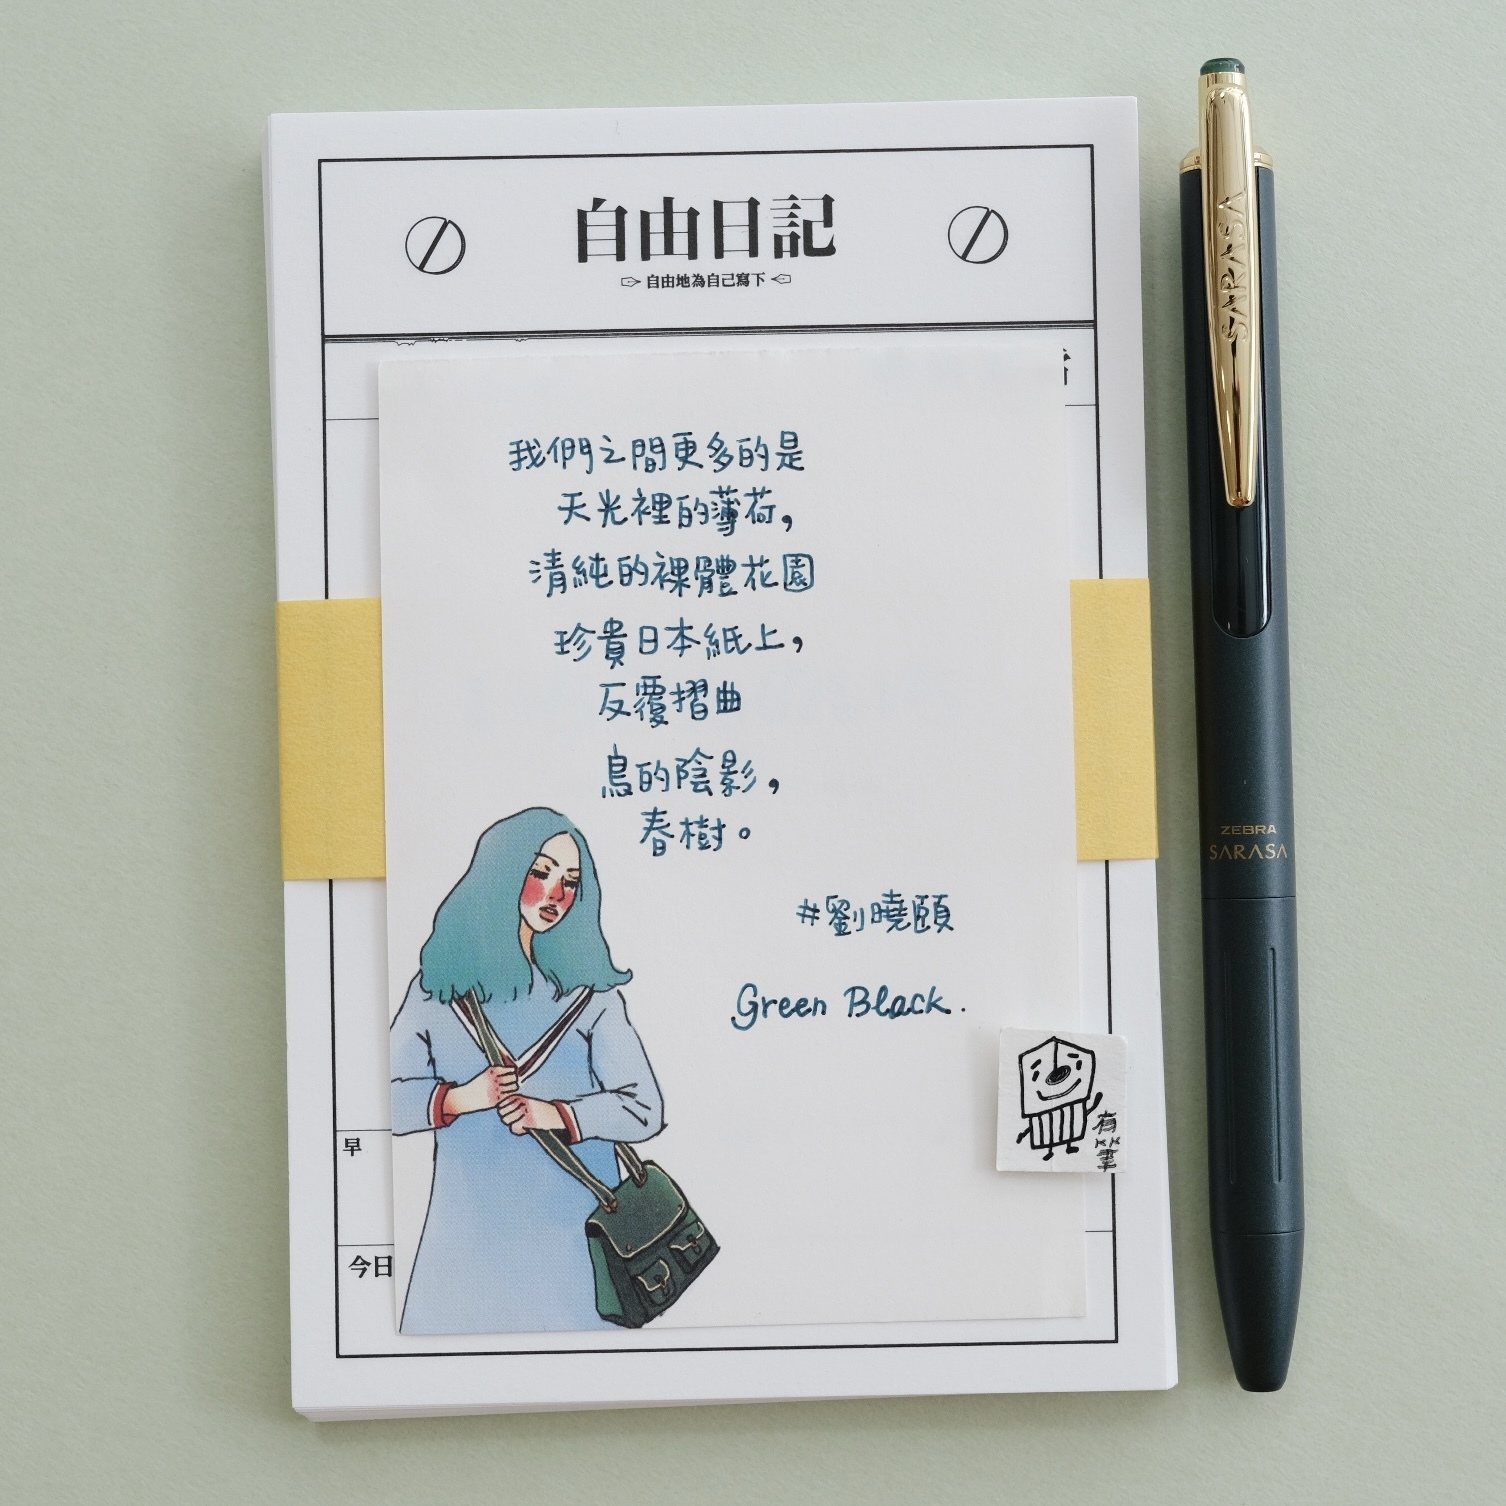 自由日記
自由地為自己寫下
我們之間更多的是
天光裡的薄荷,
清純的裸體花園
珍貴日本紙上,
反覆摺曲
鳥的陰影,
春樹。
#劉曉頤
Green Black.
有
筆
早
今日
SARASA
ZEBRA
SARASA